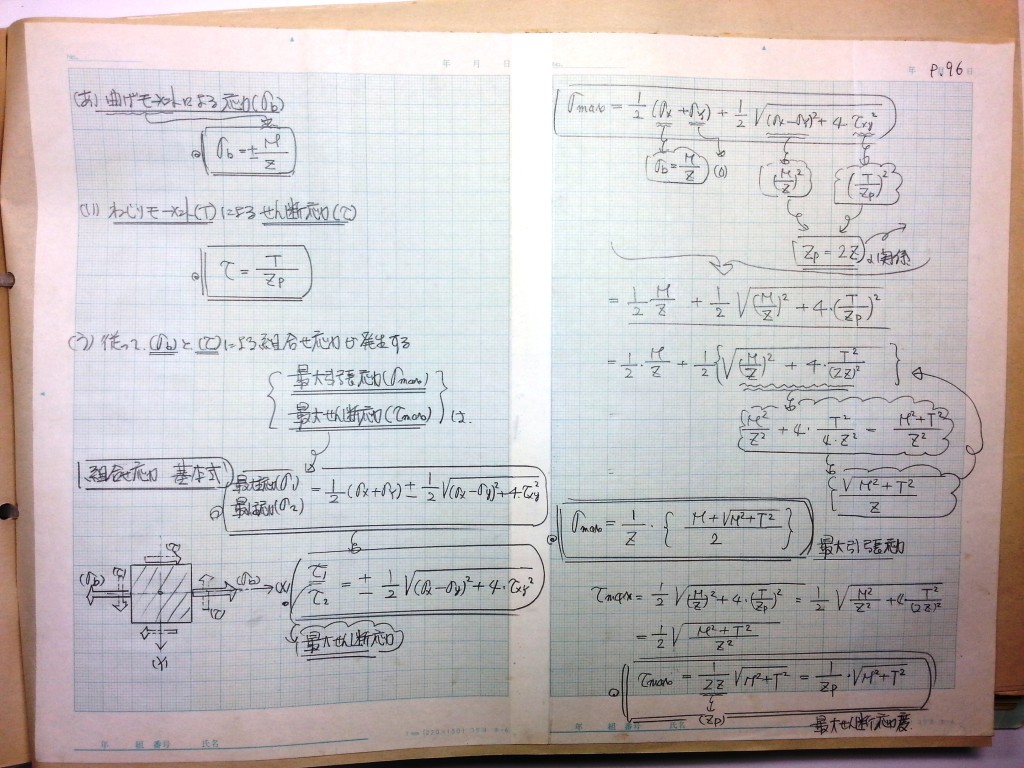 年 月 日
(あ) 曲げモーメントによる応力(σb)
σb = ± M/Z
(い) ねじりモーメント(T)によるせん断応力(τ)
τ = T/Zp
(う) 従って、(σb)と(τ)による組合せ応力が発生する
最大引張応力(σmax)
最大せん断応力(τmax) は、
組合せ応力 基本式
最大応力(σ1)
最小応力(σ2) = 1/2 (σx + σy) ± 1/2 √(σx − σy)² + 4・τxy²
τ1/τ2 = ± 1/2 √(σx − σy)² + 4・τxy²
最大せん断応力
(σb) τ τ τ (σb) (X)
(Y)
年 組 番号 氏名
年 P.96 日
σmax = 1/2 (σx + σy) + 1/2 √(σx − σy)² + 4・τxy²
σb = M/Z (0) (M/Z)² (T/Zp)²
Zp = 2Z の関係
= 1/2・M/Z + 1/2 √(M/Z)² + 4・(T/Zp)²
= 1/2・M/Z + 1/2 {√(M/Z)² + 4・T²/(2Z)²}
M²/Z² + 4・T²/4・Z² = M²+T²/Z²
=
√M²+T²/Z
σmax = 1/Z・{M+√M²+T²/2}
最大引張応力
τmax = 1/2 √(M/Z)² + 4・(T/Zp)² = 1/2 √M²/Z² + 4・T²/(2Z)²
= 1/2 √M²+T²/Z²
τmax = 1/2Z √M²+T² = 1/Zp・√M²+T²
(Zp)
最大せん断応力度
年 組 番号 氏名